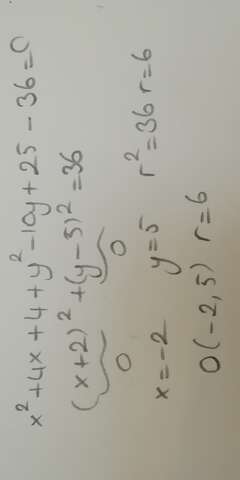 x²+4x+4+y²-10y+25-36=0
(x+2)²+(y-5)²=36
0 0
x=-2 y=5 r²=36 r=6
O(-2,5) r=6